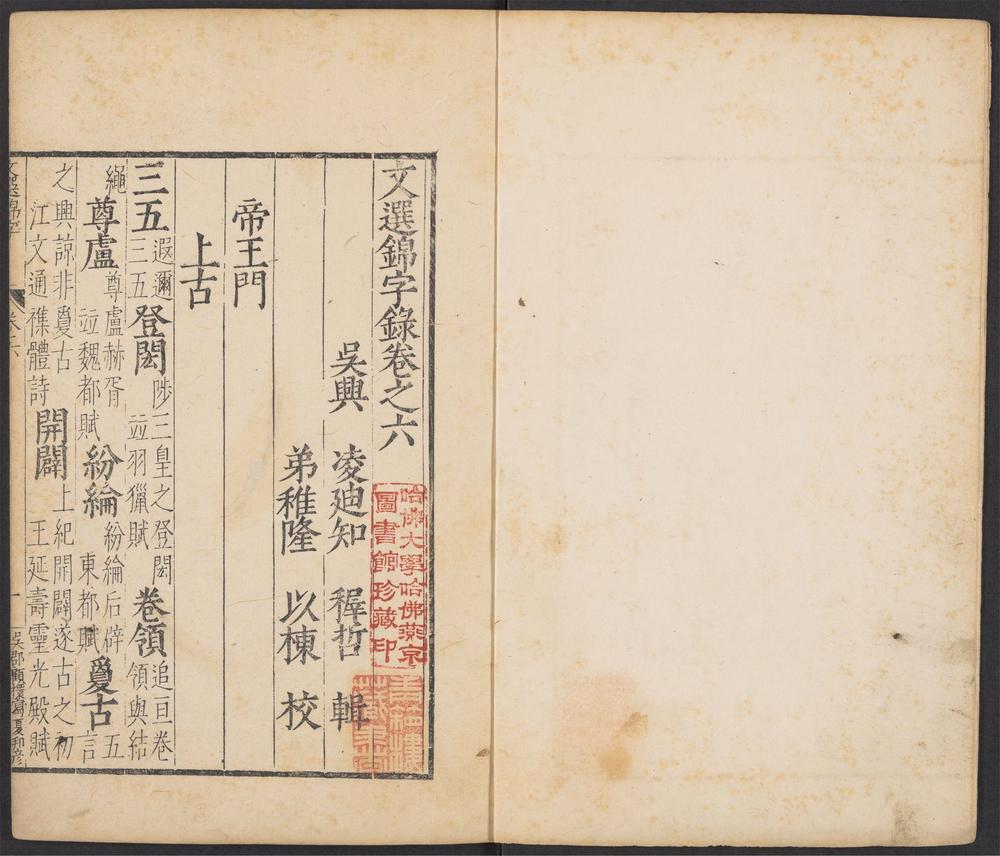 文選錦字錄卷之六
吳興　凌迪知　穉哲　輯
弟稚隆　以棟　校
帝王門
上古
三五　遐邇三五　登閎　陟三皇之登閎　竝羽獵賦　卷領　追亘卷領與結
繩　尊盧　尊盧赫胥　竝魏都賦　紛綸　紛綸后辟　東都賦　敻古　言五
之興諒非敻古　江文通襍體詩　開闢　上紀開闢遂古之初　王延壽靈光殿賦
文選錦字　卷六　一　吳郡顧檈寫夏邦彥
哈佛大學哈佛燕京圖書館珍藏印